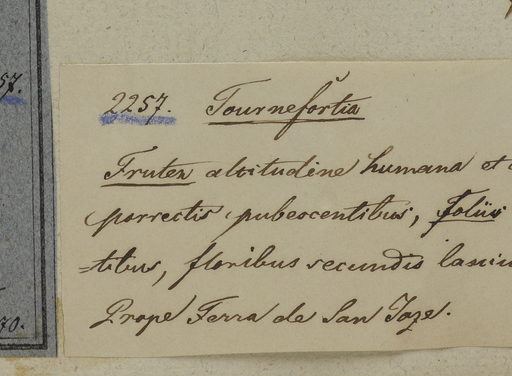 57.
2257. Tournefortia
Frutex altitudine humana et
porrectis pubescentibus, foliis
=tibus, floribus secundis
Prope Ferra de San Joze.
70.